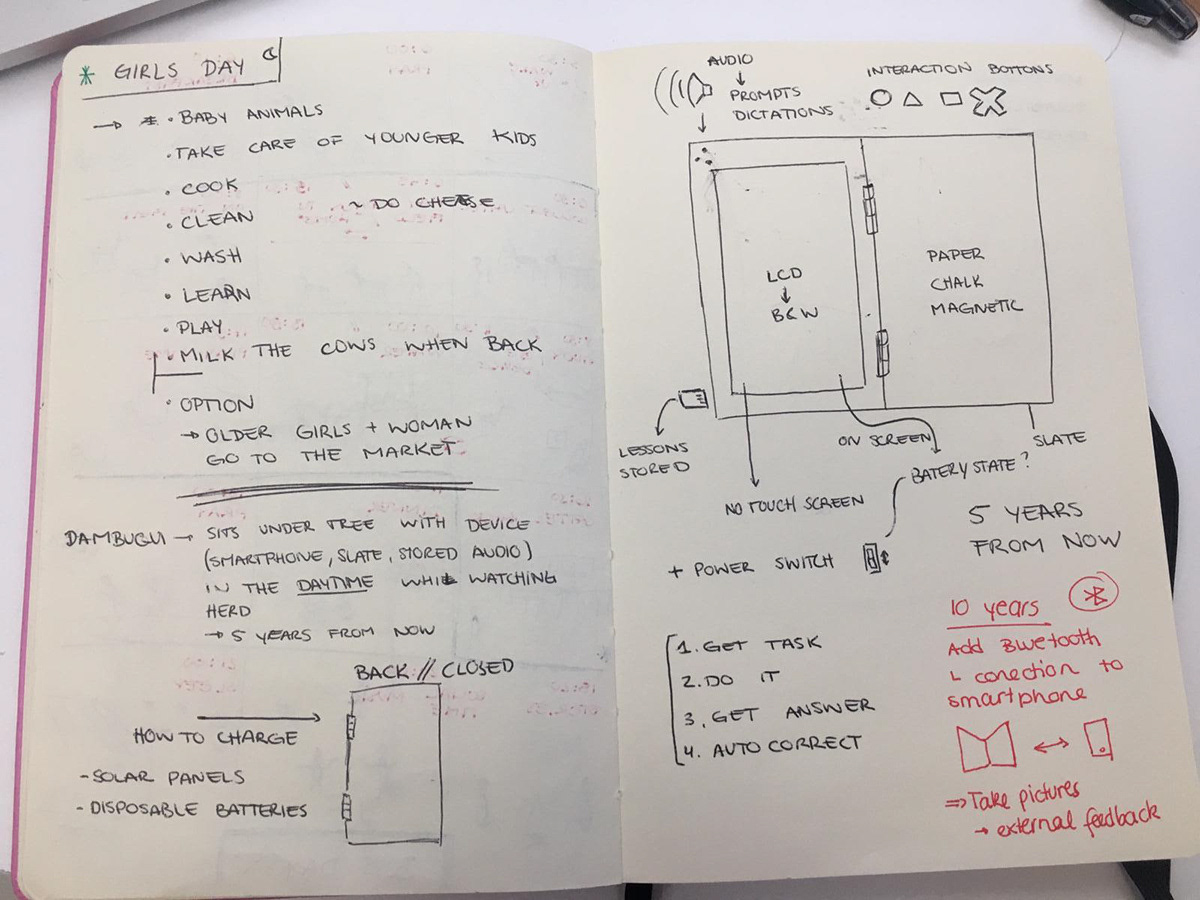 * GIRLS DAY
→ * • BABY ANIMALS
• TAKE CARE OF YOUNGER KIDS
• COOK
~ DO CHEESE
• CLEAN
• WASH
• LEARN
• PLAY
• MILK THE COWS WHEN BACK
• OPTION
→ OLDER GIRLS + WOMAN
GO TO THE MARKET
DAMBUGUI → SITS UNDER TREE WITH DEVICE
(SMARTPHONE, SLATE, STORED AUDIO)
IN THE DAYTIME WHILE WATCHING
HERD
→ 5 YEARS FROM NOW
BACK // CLOSED
HOW TO CHARGE
- SOLAR PANELS
- DISPOSABLE BATTERIES
AUDIO
↓
PROMPTS
DICTATIONS
INTERACTION BOTTONS
LCD
↓
B&W
PAPER
CHALK
MAGNETIC
LESSONS
STORED
ON SCREEN
SLATE
BATERY STATE?
NO TOUCH SCREEN
5 YEARS
FROM NOW
+ POWER SWITCH
1. GET TASK
2. DO IT
3. GET ANSWER
4. AUTO CORRECT
10 years
Add Bluetooth
↳ conection to
smartphone
⇒ Take pictures
→ external feedback